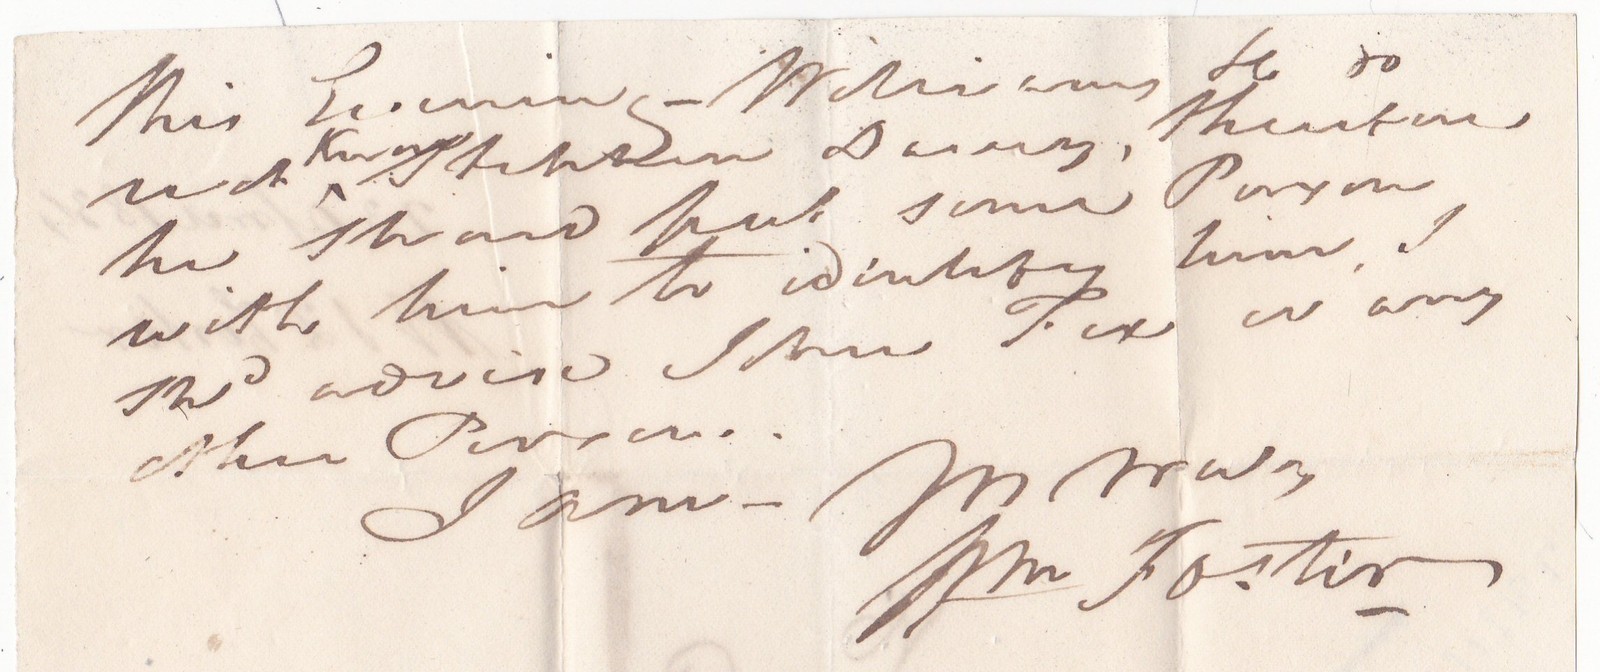 this Evening – Williams & Co do
not know Stephen Davey, therefore
he should put some Person
with him to identify him, I
shd advise John Tex or any
other Person.
I am –
Wm Foster